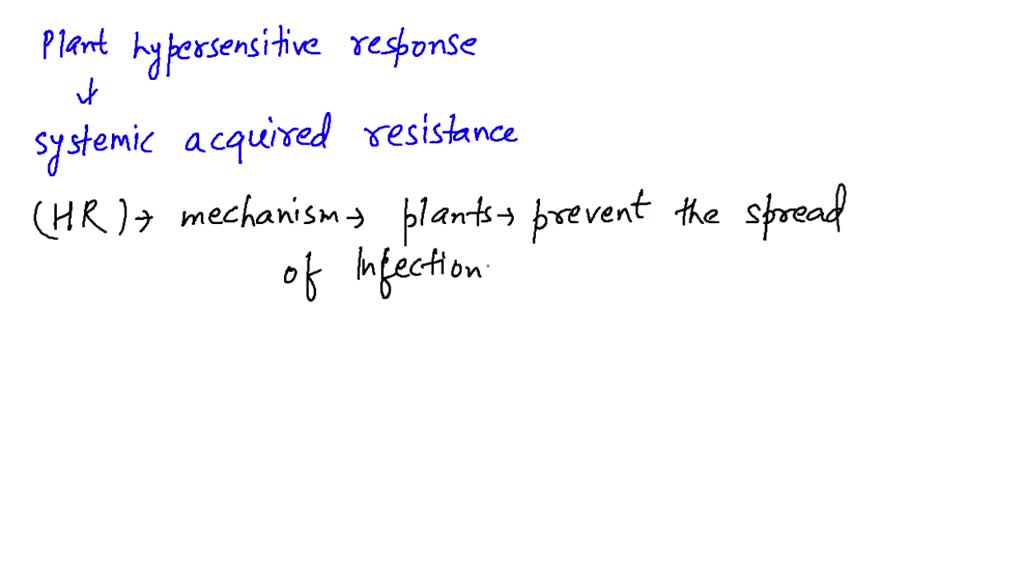 Plant hypersensitive response
↓
systemic acquired resistance
(HR) → mechanism → plants → prevent the spread
of Infection